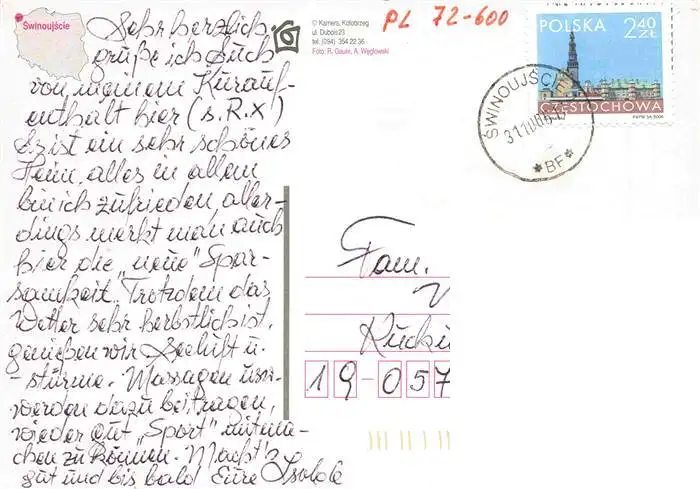 Świnoujście
Sehr herzlich
grüße ich Euch
von meinem Kurauf-
enthalt hier (s. R. x)
Es ist ein sehr schönes
Heim, alles in allem
bin ich zufrieden, aller-
dings merkt man auch
hier die „neue" Spar-
samkeit. Trotzdem das
Wetter sehr herbstlich ist,
genießen wir Seeluft u.
-stürme. Massagen usw.
werden dazu beitragen,
wieder gut „Sport" mitma-
chen zu können. Macht's
gut und bis bald Eure Isolde
© Kamera, Kołobrzeg
ul. Dubois23
tel. (094) 354 22 36
Foto: R. Gauer, A. Węglowski
PL 72-600
POLSKA 2,40
ZŁ
CZĘSTOCHOWA
PWPW SA 2006
ŚWINOUJŚCIE
*BF*
Fam.
19-057